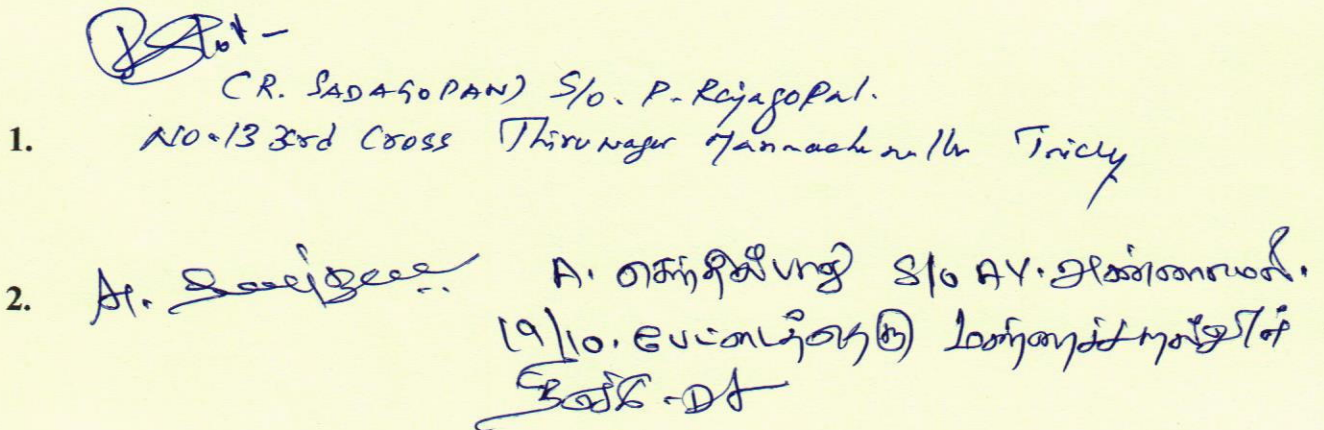 (R. SADAGOPAN) S/o. P. Rajagopal.
1. No. 13 3rd Cross Thirunagar Mannachanallur Trichy
2. A. செந்தில்பாபு S/o AY. அண்ணாமலை.
19/10. பேட்டைத்தெரு மண்ணச்சநல்லூர்